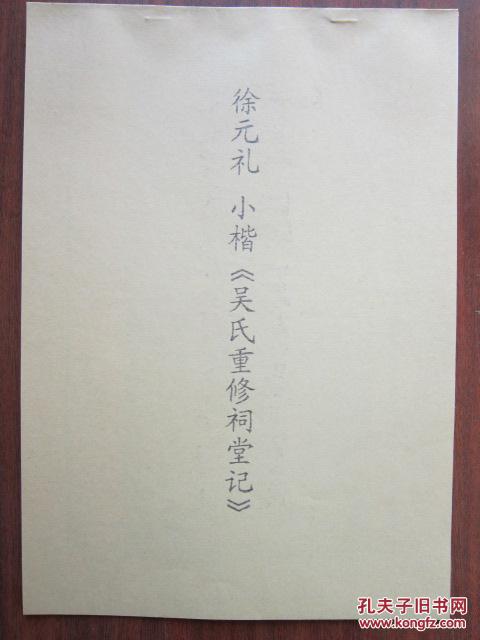 徐元礼 小楷《吴氏重修祠堂记》
孔夫子旧书网
www.kongfz.com